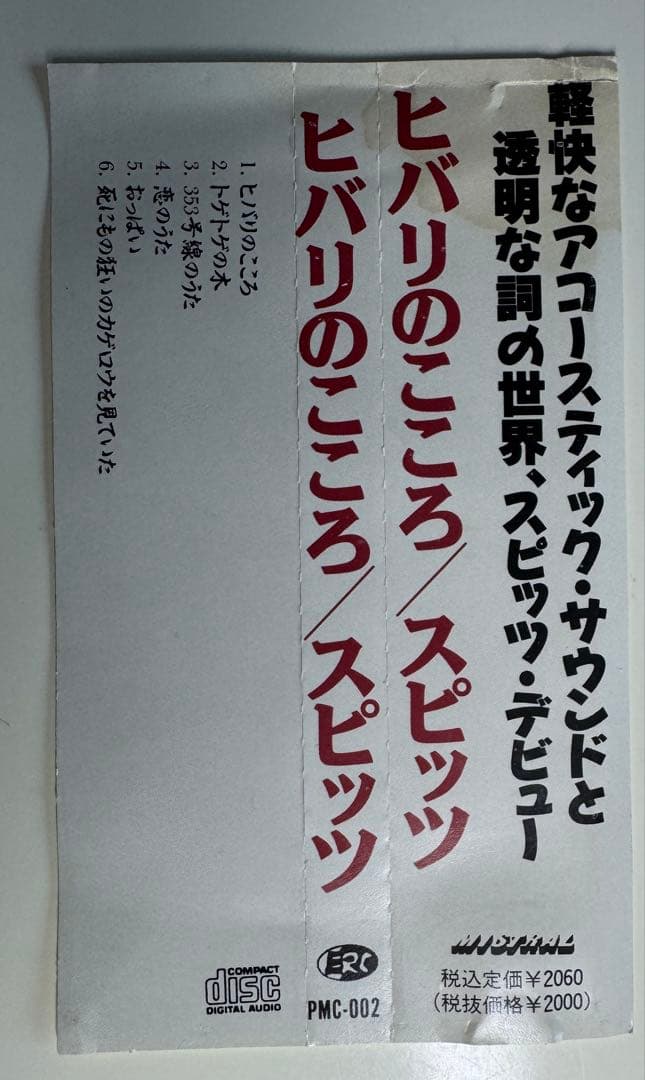 軽快なアコースティック・サウンドと
透明な詞の世界、スピッツ・デビュー
ヒバリのこころ/スピッツ
ヒバリのこころ/スピッツ
1. ヒバリのこころ
2. トゲトゲの木
3. 353号線のうた
4. 恋のうた
5. おっぱい
6. 死にもの狂いのカゲロウを見ていた
MISTRAL
税込定価¥2060
(税抜価格¥2000)
ERC
PMC-002
COMPACT
disc
DIGITAL AUDIO